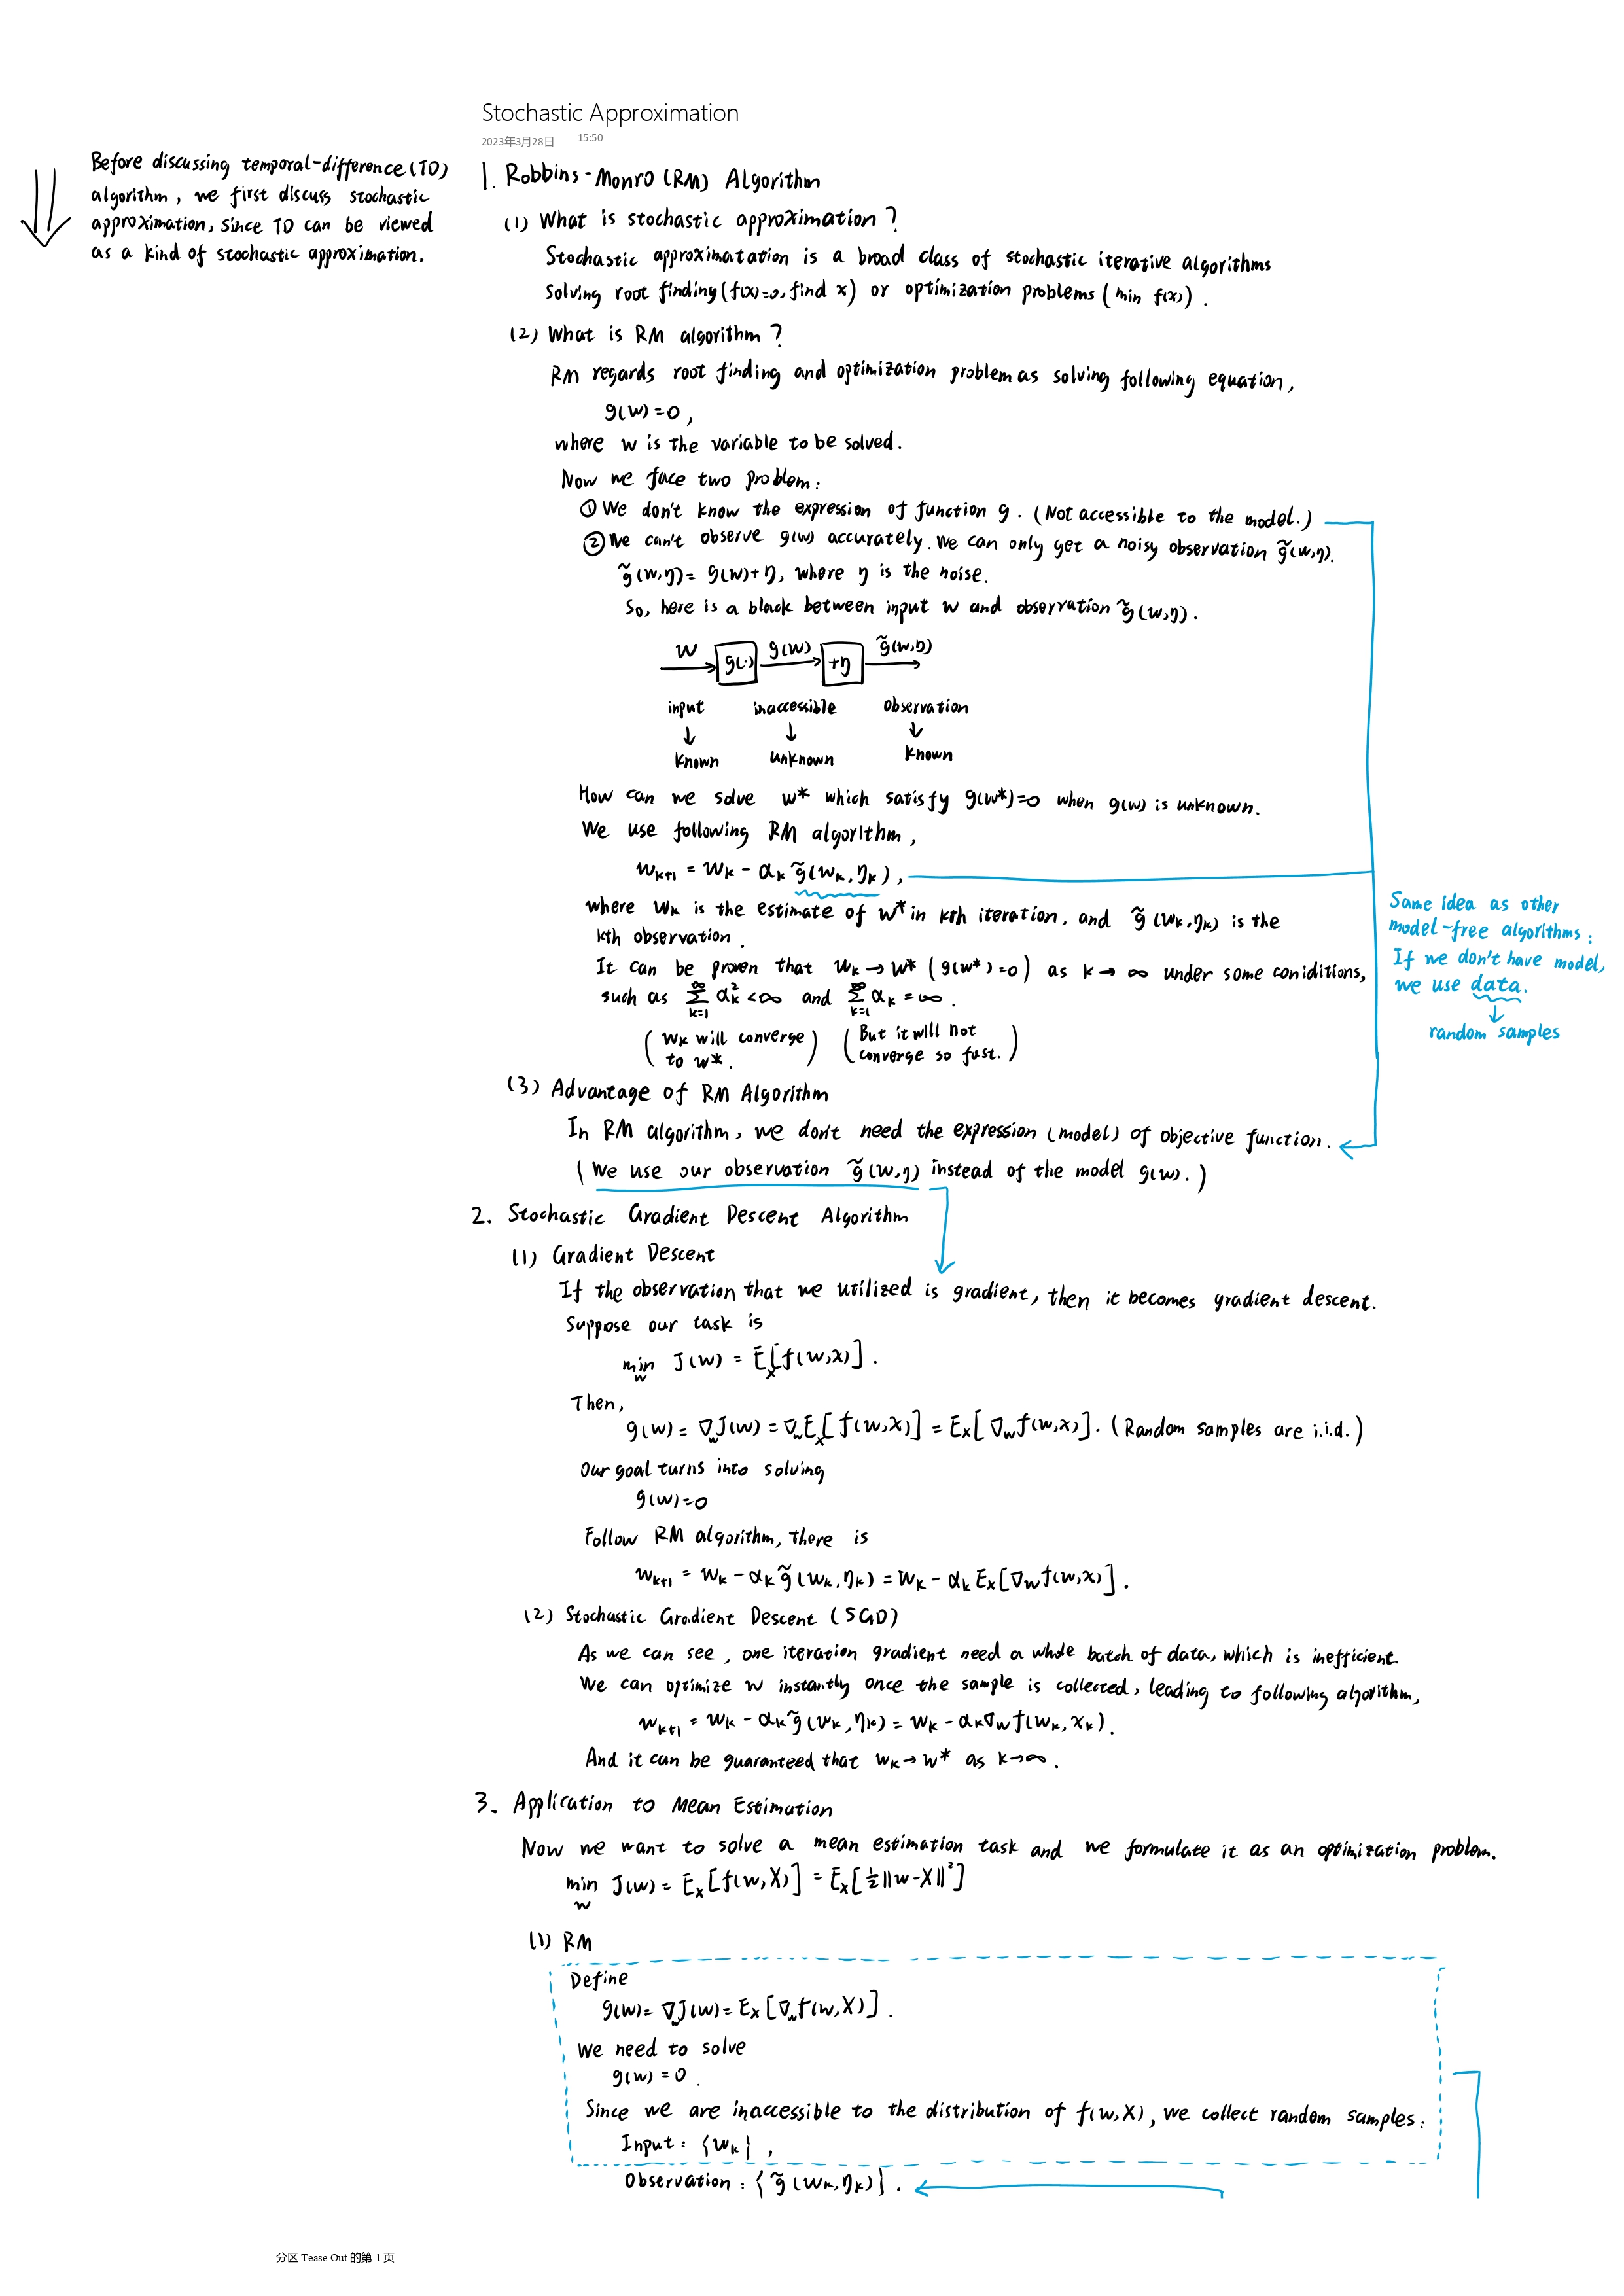 Stochastic Approximation
2023年3月28日 15:50
Before discussing temporal-difference (TD)
algorithm, we first discuss stochastic
approximation, since TD can be viewed
as a kind of stochastic approximation.
1. Robbins-Monro (RM) Algorithm
(1) What is stochastic approximation?
Stochastic approximatation is a broad class of stochastic iterative algorithms
solving root finding (f(x)=0, find x) or optimization problems (min f(x)).
(2) What is RM algorithm?
RM regards root finding and optimization problem as solving following equation,
g(w)=0,
where w is the variable to be solved.
Now we face two problem:
① We don't know the expression of function g. (Not accessible to the model.)
② We can't observe g(w) accurately. We can only get a noisy observation g̃(w,η).
g̃(w,η)= g(w)+η, where η is the noise.
So, here is a black between input w and observation g̃(w,η).
w g(·) g(w) +η g̃(w,η)
input inaccessible observation
↓ ↓ ↓
known unknown known
How can we solve w* which satisfy g(w*)=0 when g(w) is unknown.
We use following RM algorithm,
w_{k+1} = w_k - α_k g̃(w_k, η_k),
where w_k is the estimate of w* in kth iteration, and g̃(w_k,η_k) is the
kth observation.
It can be proven that w_k → w* (g(w*)=0) as k → ∞ under some coniditions,
such as ∑_{k=1}^∞ α_k² < ∞ and ∑_{k=1}^∞ α_k = ∞.
(w_k will converge to w*.) (But it will not converge so fast.)
Same idea as other
model-free algorithms:
If we don't have model,
we use data.
↓
random samples
(3) Advantage of RM Algorithm
In RM algorithm, we don't need the expression (model) of objective function.
(We use our observation g̃(w,η) instead of the model g(w).)
2. Stochastic Gradient Descent Algorithm
(1) Gradient Descent
If the observation that we utilized is gradient, then it becomes gradient descent.
Suppose our task is
min_w J(w) = E_X[f(w,x)].
Then,
g(w) = ∇_w J(w) = ∇_w E_X[f(w,X)] = E_X[∇_w f(w,x)]. (Random samples are i.i.d.)
Our goal turns into solving
g(w)=0
Follow RM algorithm, there is
w_{k+1} = w_k - α_k g̃(w_k, η_k) = w_k - α_k E_X[∇_w f(w,x)].
(2) Stochastic Gradient Descent (SGD)
As we can see, one iteration gradient need a whole batch of data, which is inefficient.
We can optimize w instantly once the sample is collected, leading to following algorithm,
w_{k+1} = w_k - α_k g̃(w_k, η_k) = w_k - α_k ∇_w f(w_k, x_k).
And it can be guaranteed that w_k → w* as k→∞.
3. Application to Mean Estimation
Now we want to solve a mean estimation task and we formulate it as an optimization problem.
min_w J(w) = E_X[f(w,X)] = E_X[½||w-X||²]
(1) RM
Define
g(w) = ∇_w J(w) = E_X[∇_w f(w,X)].
We need to solve
g(w) = 0.
Since we are inaccessible to the distribution of f(w,X), we collect random samples:
Input: {w_k},
Observation: {g̃(w_k,η_k)}.
分区 Tease Out 的第 1 页